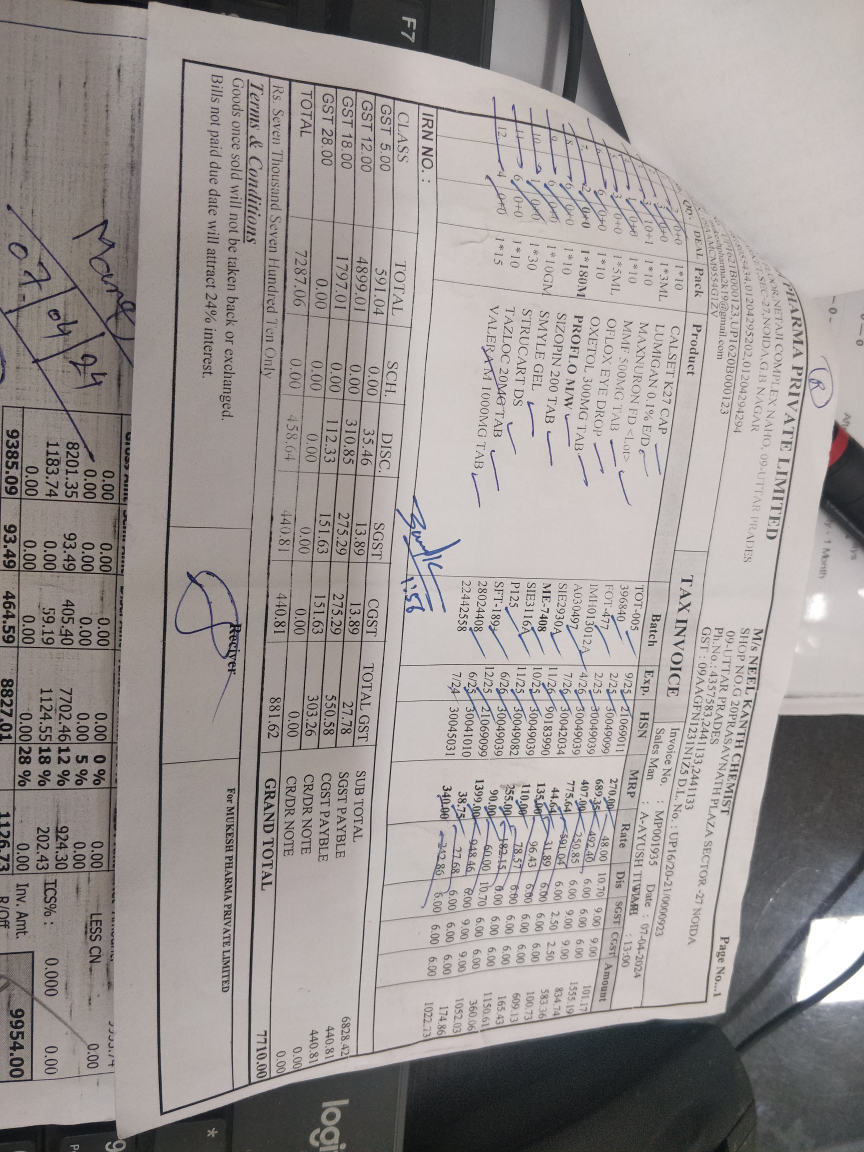 PHARMA PRIVATE LIMITED
OOR,NETAJI COMPLEX NAHO, 09-UTTAR PRADES
SEC-27,NOIDA,G.B NAGAR
434,01204295202,01204294294
B000123,UP1620B000123
pharma2k19@gmail.com
AAMCM9554G1ZV
R
M/s NEEL KANTH CHEMIST
SHOP NO.G 20PRASAVNATH PLAZA SECTOR -27 NOIDA
09-UTTAR PRADES
Ph.No.: 4357583,2441133,2441133
GST : 09AAGFN1231N1Z5 D.L. No. : UP16/20-21/0000923
Page No...1
TAX INVOICE
Invoice No. : MP001935 Date : 07-04-2024
Sales Man : A-AYUSH TIWARI : 13:00
QTY DEAL Pack Product Batch Exp. HSN MRP Rate Dis SGST CGST Amount
0+0 1*10 CALSET K27 CAP TOT-005 9/25 21069011 270.00 48.00 10.70 9.00 9.00 101.17
0+0 1*3ML LUMIGAN 0.1% E/D 396840 2/25 30049099 689.35 492.40 6.00 6.00 6.00 1555.19
10+1 1*10 MAXNURON FD <Lot> FOT-477 2/25 30049039 407.00 250.85 6.00 9.00 9.00 834.74
0+0 1*10 MMF 500MG TAB IMH013012A 4/26 30049039 775.64 591.04 6.00 2.50 2.50 583.36
3 0+0 1*5ML OFLOX EYE DROP A030497 7/26 30042034 44.64 31.89 6.00 6.00 6.00 100.73
6 0+0 1*10 OXETOL 300MG TAB SIE2930A 11/26 90183990 135.00 96.43 6.00 6.00 6.00 609.13
7. 2 0+0 1*180M PROFLO M/W ME-7408 10/25 30049039 110.00 78.57 6.00 6.00 6.00 165.43
8. 6 0+0 1*10 SIZOPIN 200 TAB SIE3116A 11/25 30049082 255.00 182.15 6.00 6.00 6.00 1150.61
9. 6 0+0 1*10GM SMYLE GEL P125 6/26 30049039 90.00 60.00 10.70 6.00 6.00 360.06
10. 1 0+0 1*30 STRUCART DS SFT-189 12/25 21069099 1399.00 948.46 6.00 9.00 9.00 1052.03
11. 6 0+0 1*10 TAZLOC 20MG TAB 28024408 6/25 30041010 38.75 27.68 6.00 6.00 6.00 174.86
12. 4 0+0 1*15 VALERA M 1000MG TAB 22442558 7/24 30045031 340.00 242.86 6.00 6.00 6.00 1022.73
1:56
IRN NO. :
CLASS TOTAL SCH. DISC. SGST CGST TOTAL GST
GST 5.00 591.04 0.00 35.46 13.89 13.89 27.78
GST 12.00 4899.01 0.00 310.85 275.29 275.29 550.58
GST 18.00 1797.01 0.00 112.33 151.63 151.63 303.26
GST 28.00 0.00 0.00 0.00 0.00 0.00 0.00
TOTAL 7287.06 0.00 458.64 440.81 440.81 881.62
SUB TOTAL 6828.42
SGST PAYBLE 440.81
CGST PAYBLE 440.81
CR/DR NOTE 0.00
CR/DR NOTE 0.00
Rs. Seven Thousand Seven Hundred Ten Only
GRAND TOTAL 7710.00
Terms & Conditions
Goods once sold will not be taken back or exchanged.
Bills not paid due date will attract 24% interest.
Reciver
For MUKESH PHARMA PRIVATE LIMITED
07/04/24
0.00 0.00 0.00 0.00 0 % 0.00
0.00 0.00 0.00 0.00 5 % 0.00
8201.35 93.49 405.40 7702.46 12 % 924.30
1183.74 0.00 59.19 1124.55 18 % 202.43
0.00 0.00 0.00 0.00 28 % 0.00
9385.09 93.49 464.59 8827.01 1126.73
LESS CN 0.00
TCS% : 0.000 0.00
R/Off
Inv. Amt. 9954.00
F7
logi
1 Month